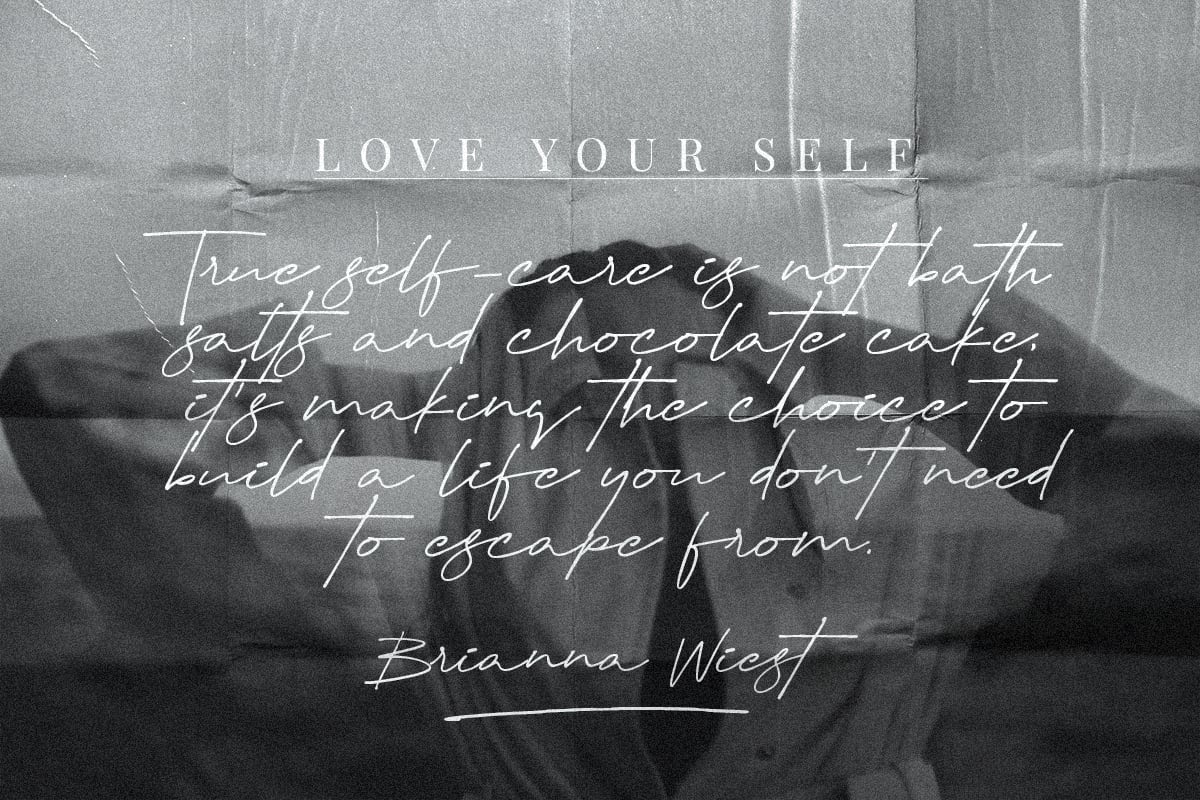 LOVE YOUR SELF
True self-care is not bath
salts and chocolate cake,
it's making the choice to
build a life you don't need
to escape from.
Brianna Wiest